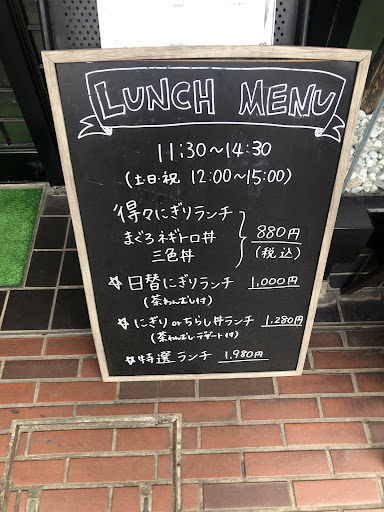 LUNCH MENU
11:30〜14:30
(土日・祝 12:00〜15:00)
得々にぎりランチ
まぐろネギトロ丼
三色丼
880円
(税込)
☆日替にぎりランチ 1,000円
(茶わんむし付)
☆にぎりorちらし丼ランチ 1,280円
(茶わんむし・デザート付)
☆特選ランチ 1,980円